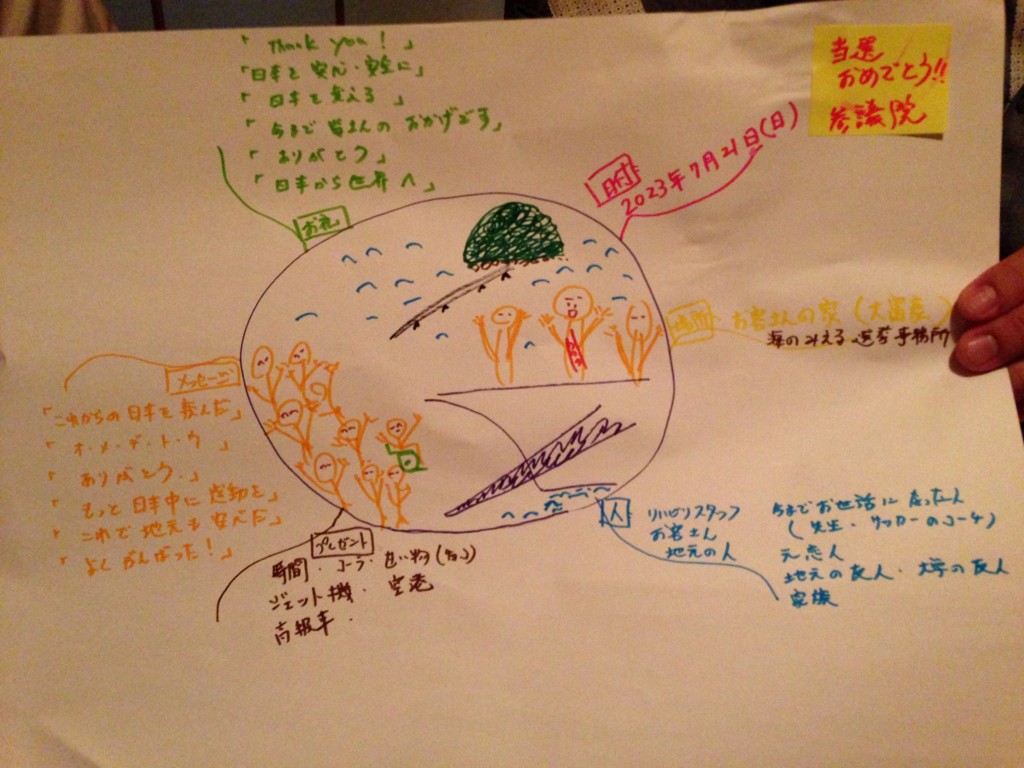 「Thank you!」
「日本を安心・安全に」
「日本を変える」
「今まで皆さんのおかげです」
「ありがとう」
「日本から世界へ」
お礼
当選
おめでとう!!
参議院
日付
2023年7月21日(日)
場所
お客さんの家(大富豪)
海のみえる選挙事務所
メッセージ
「これからの日本を頼んだ」
「オ・メ・デ・ト・ウ」
「ありがとう。」
「もっと日本中に感動を」
「これで地元も安心だ」
「よくがんばった!」
プレゼント
時間・コーラ・
ジェット機・空港
高級車・
人
リハビリスタッフ
お客さん
地元の人
今までお世話になった人
(先生・サッカーのコーチ)
元恋人
地元の友人・大学の友人
家族